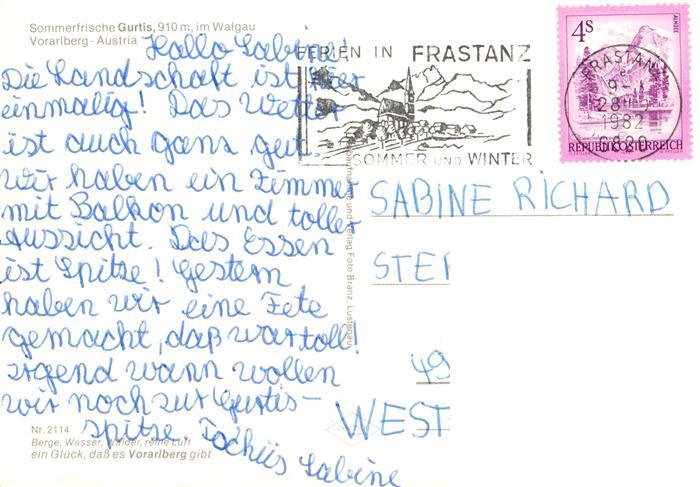 Sommerfrische Gurtis, 910 m, im Walgau
Vorarlberg - Austria
Hallo Sabine!
Die Landschaft ist hier
einmalig! Das Wetter
ist auch ganz gut.
Wir haben ein Zimmer
mit Balkon und toller
Aussicht. Das Essen
ist Spitze! Gestern
haben wir eine Fete
gemacht, daß war toll!
irgend wann wollen
wir noch zur Gurtis-
spitze. Tschüs Sabine
Nr. 2114
Berge, Wasser, Wälder, reine Luft
ein Glück, daß es Vorarlberg gibt
FERIEN IN FRASTANZ
SOMMER UND WINTER
4S
ALMSEE
REPUBLIK ÖSTERREICH
FRASTANZ
9-
1982
6820
und Verlag Foto Branz, Lustenau
SABINE RICHARD
STE
49
WEST